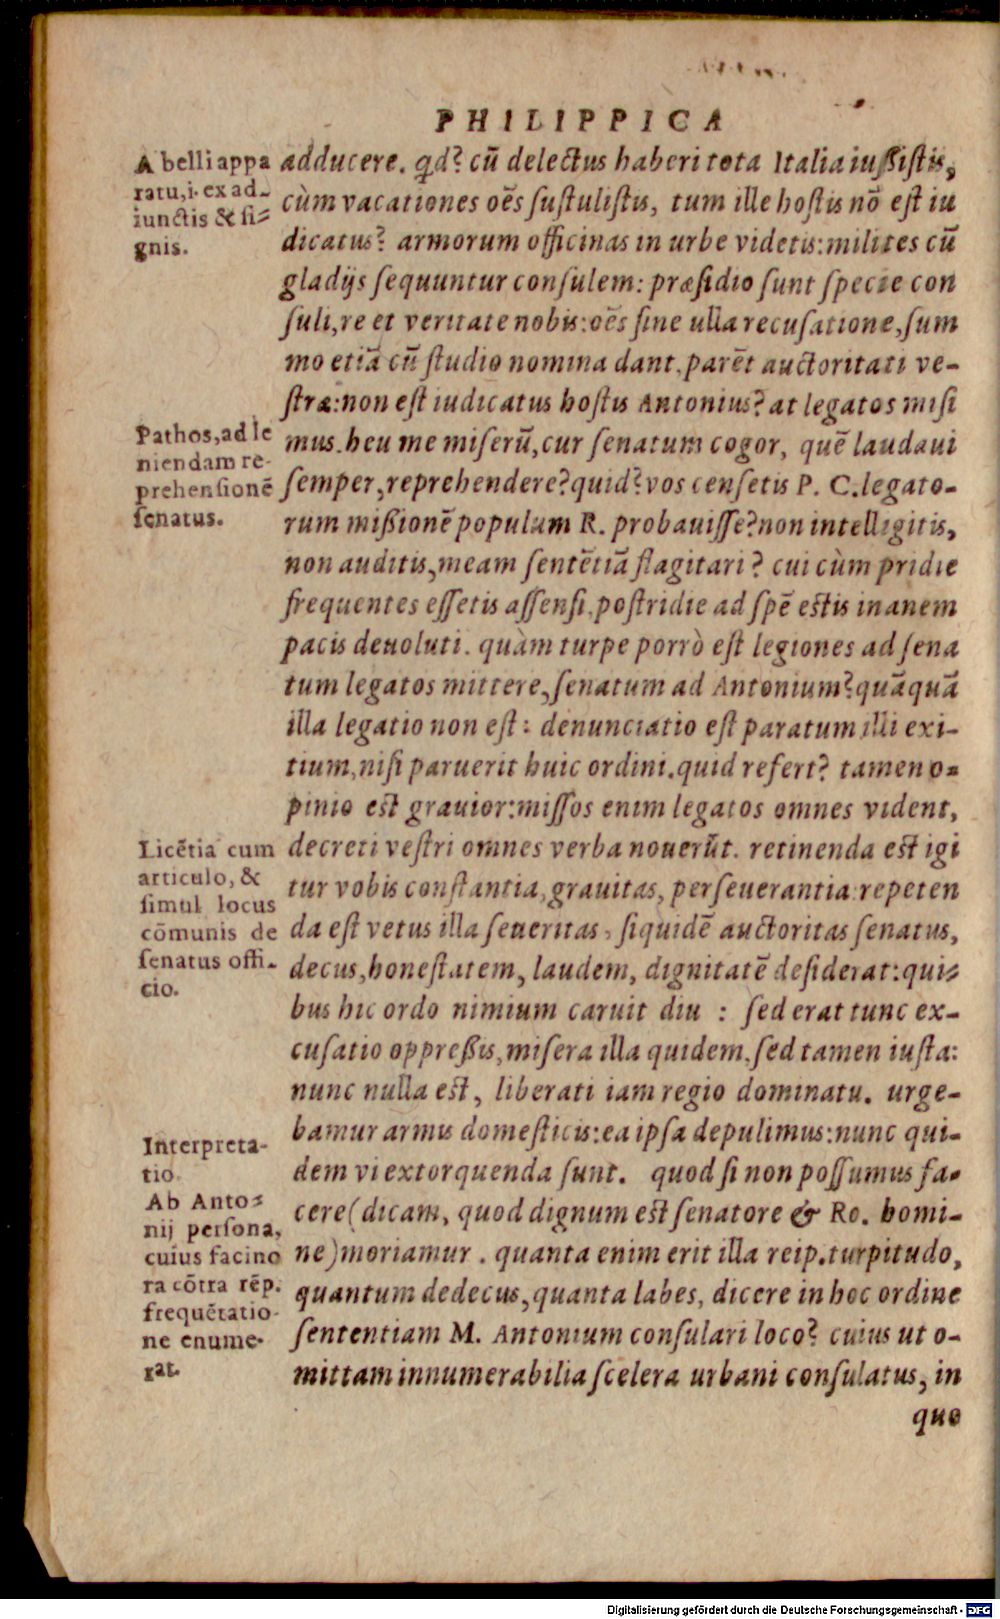 PHILIPPICA
A belli appa
ratu, i. ex ad-
iunctis & si-
gnis.
adducere. qd? cũ delectus haberi tota Italia iußistis,
cùm vacationes oẽs sustulistis, tum ille hostis nõ est iu
dicatus? armorum officinas in urbe videtis: milites cũ
gladijs sequuntur consulem: præsidio sunt specie con
suli, re et veritate nobis: oẽs sine ulla recusatione, sum
mo etiã cũ studio nomina dant, parẽt auctoritati ve-
stræ: non est iudicatus hostis Antonius? at legatos misi
Pathos, ad le
niendam re-
prehensionẽ
senatus.
mus. heu me miserũ, cur senatum cogor, quẽ laudaui
semper, reprehendere? quid? vos censetis P. C. legato-
rum mißionẽ populum R. probauisse? non intelligitis,
non auditis, meam sentẽtiã flagitari? cui cùm pridie
frequentes essetis assensi, postridie ad spẽ estis inanem
pacis deuoluti. quàm turpe porrò est legiones ad sena
tum legatos mittere, senatum ad Antonium? quãquã
illa legatio non est: denunciatio est paratum illi exi-
tium, nisi paruerit huic ordini. quid refert? tamen o-
pinio est grauior: missos enim legatos omnes vident,
Licẽtia cum
articulo, &
simul locus
cõmunis de
senatus offi-
cio.
decreti vestri omnes verba nouerũt. retinenda est igi
tur vobis constantia, grauitas, perseuerantia: repeten
da est vetus illa seueritas, siquidẽ auctoritas senatus,
decus, honestatem, laudem, dignitatẽ desiderat: qui-
bus hic ordo nimium caruit diu : sed erat tunc ex-
cusatio oppreßis, misera illa quidem, sed tamen iusta:
nunc nulla est, liberati iam regio dominatu. urge-
bamur armis domesticis: ea ipsa depulimus: nunc qui-
Interpreta-
tio.
Ab Anto-
nij persona,
cuius facino
ra cõtra rẽp.
frequẽtatio-
ne enume-
rat.
dem vi extorquenda sunt. quod si non possumus fa-
cere (dicam, quod dignum est senatore & Ro. homi-
ne) moriamur. quanta enim erit illa reip. turpitudo,
quantum dedecus, quanta labes, dicere in hoc ordine
sententiam M. Antonium consulari loco? cuius ut o-
mittam innumerabilia scelera urbani consulatus, in
quo
Digitalisierung gefördert durch die Deutsche Forschungsgemeinschaft - DFG